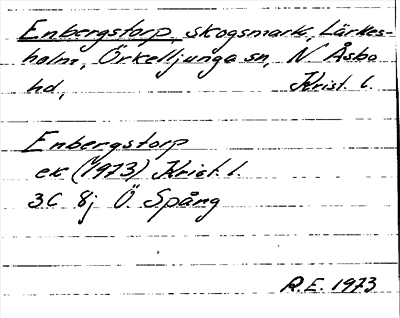 Enbergstorp, skogsmark, Lärkes-
holm, Örkelljunga sn, N Åsbo
hd, Krist. l.
Enbergstorp
ek (1973) Krist. l.
3C 8j Ö. Spång
R.E. 1973